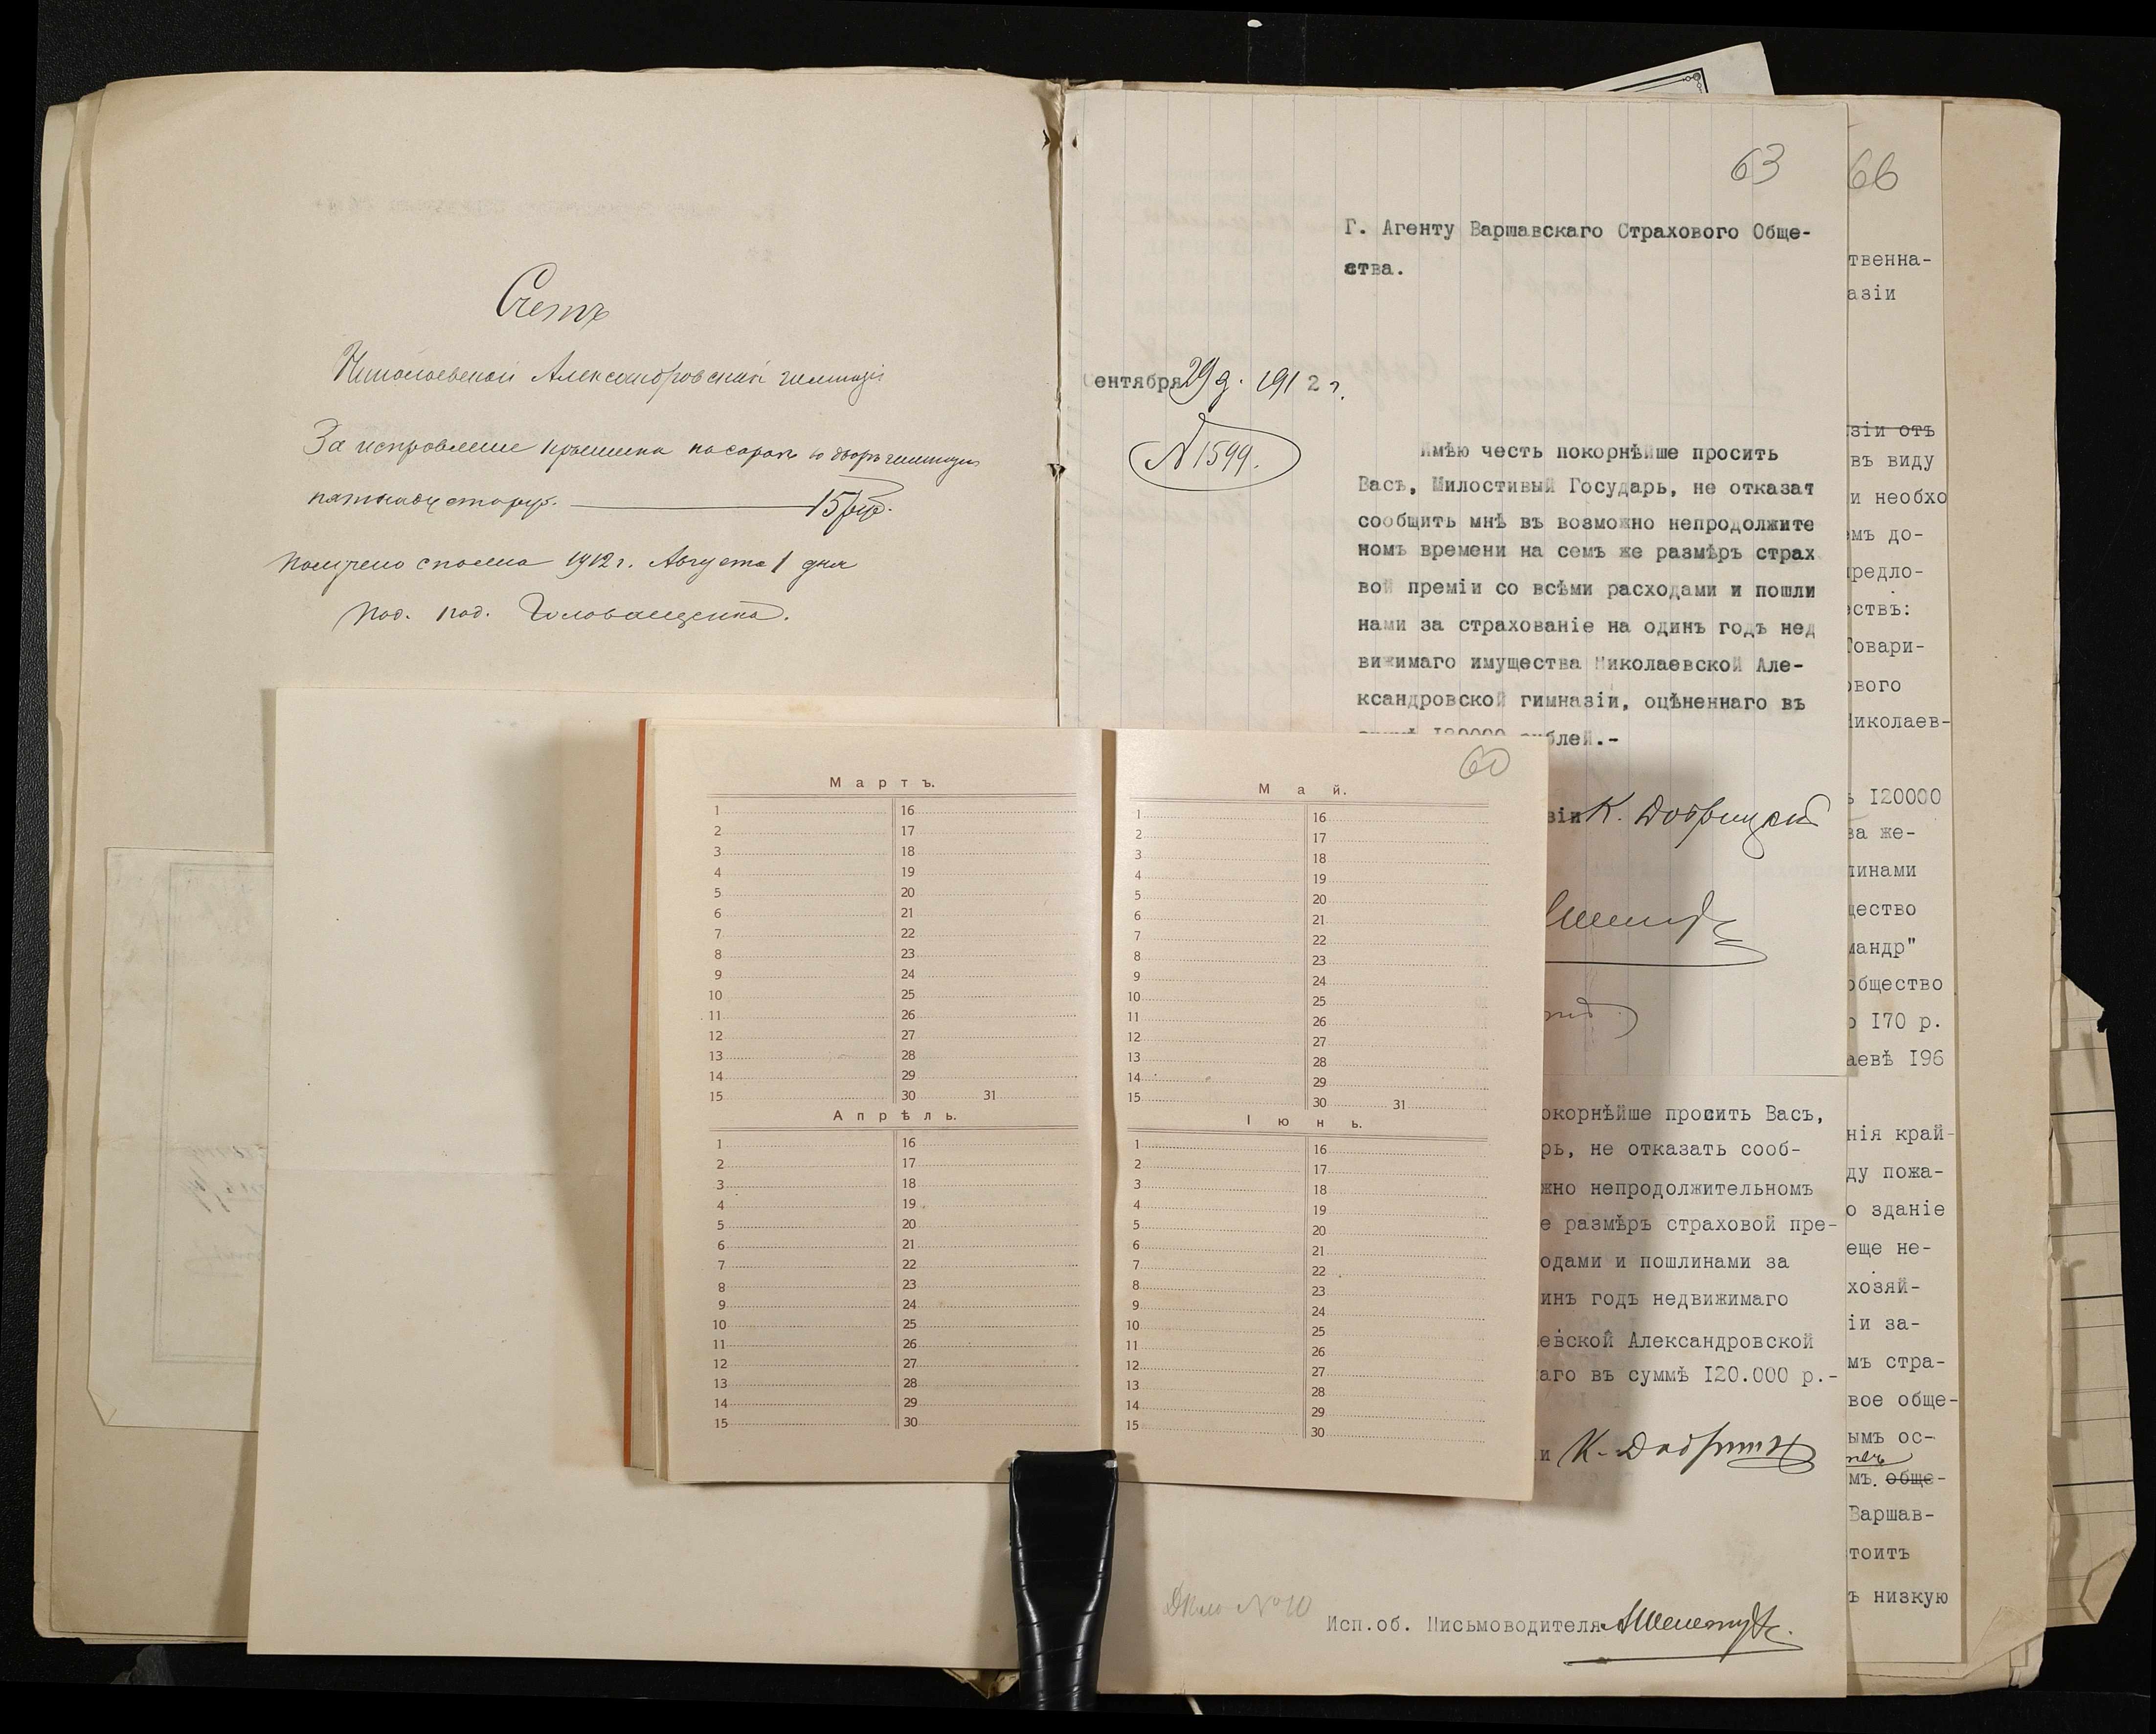 Счетъ
Николаевской Александровской гимназіи
За исправление крышика на сараи во дворъ гимназіи
пятнадцать руб. 15 руб.
Получено сполна 1912 г. Августа 1 дня
Под. под. Головащенко.
63
Г. Агенту Варшавскаго Страхового Обще-
ства.
Сентября 29 д. 1912 г.
№ 1599.
Имѣю честь покорнѣйше просить
Васъ, Милостивый Государь, не отказат
сообщить мнѣ въ возможно непродолжите
номъ времени на семъ же размѣръ страх
вой преміи со всѣми расходами и пошли
нами за страхованіе на одинъ годъ нед
вижимаго имущества Николаевской Але-
ксандровской гимназіи, оцѣненнаго въ
суммѣ I20000 рублей.-
зіи К. Добрицкій
60
Мартъ.
1 16
2 17
3 18
4 19
5 20
6 21
7 22
8 23
9 24
10 25
11 26
12 27
13 28
14 29
15 30 31
Апрѣль.
1 16
2 17
3 18
4 19
5 20
6 21
7 22
8 23
9 24
10 25
11 26
12 27
13 28
14 29
15 30
Май.
1 16
2 17
3 18
4 19
5 20
6 21
7 22
8 23
9 24
10 25
11 26
12 27
13 28
14 29
15 30 31
Іюнь.
1 16
2 17
3 18
4 19
5 20
6 21
7 22
8 23
9 24
10 25
11 26
12 27
13 28
14 29
15 30
окорнѣйше просить Васъ,
рь, не отказать сооб-
жно непродолжительномъ
е размѣръ страховой пре-
одами и пошлинами за
инъ годъ недвижимаго
евской Александровской
аго въ суммѣ I20.000 р.-
и К. Добриц
Дѣло № 10
Исп.об. Письмоводителя
66
твенна-
азіи
зіи отъ
въ виду
и необхо
мъ до-
редло-
ствъ:
Товари-
ового
Николаев-
ъ I20000
ва же-
линами
щество
мандр"
общество
о I70 р.
аевѣ I96
нія край-
ду пожа-
о зданіе
еще не-
хозяй-
іи за-
мъ стра-
вое обще-
ымъ ос-
мъ. обще-
Варшав-
тоитъ
ъ низкую